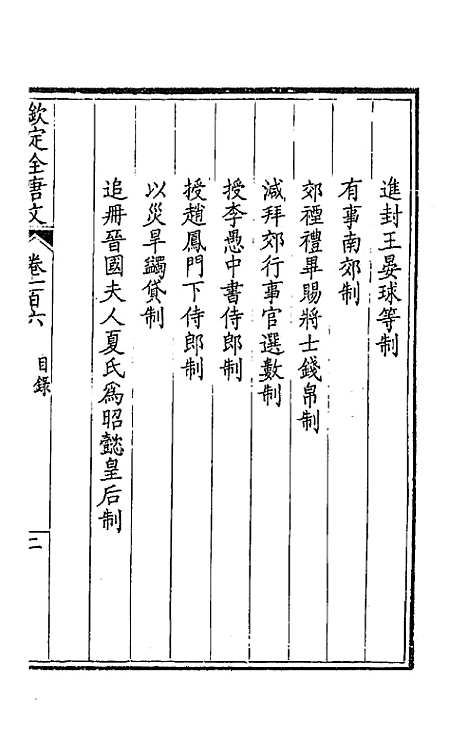 進封王晏球等制
有事南郊制
郊禋禮畢賜將士錢帛制
減拜郊行事官選數制
授李愚中書侍郎制
授趙鳳門下侍郎制
以災旱蠲貸制
追冊晉國夫人夏氏爲昭懿皇后制
欽定全唐文
卷一百六
目錄
二